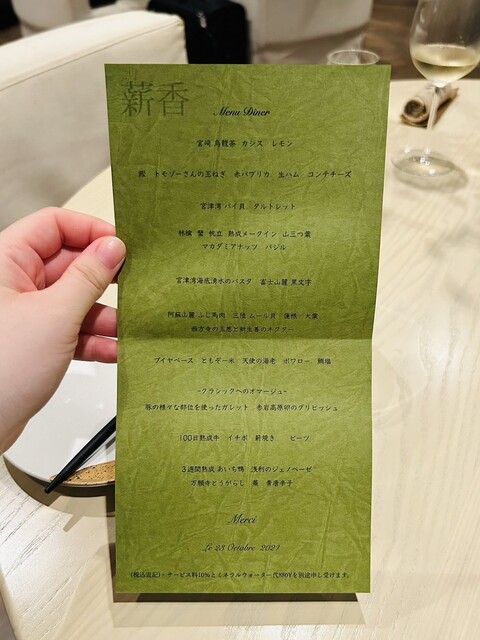 薪香
Menu Dîner
宮崎 烏龍茶 カシス レモン
鰹 トモゾーさんの玉ねぎ 赤パプリカ 生ハム コンテチーズ
宮津湾 バイ貝 タルトレット
林檎 蟹 帆立 熟成メークイン 山三つ葉
マカダミアナッツ バジル
宮津湾海底湧水のパスタ 富士山麓 黒文字
阿蘇山麓 ふじ馬肉 三陸 ムール貝 蓮根 大葉
ブイヤベース ともぞー米 天使の海老 ポワロー 鯛塩
-クラシックへのオマージュ-
豚の様々な部位を使ったガレット 赤岩高原卵のグリビッシュ
100日熟成牛 イチボ 薪焼き ビーツ
3週間熟成 あいち鴨 浅利のジュノベーゼ
万願寺とうがらし 青唐辛子
Merci
Le 23 Octobre 2021
(税込表記)・サービス料10%とミネラルウォーター代880¥を別途申し受けます。